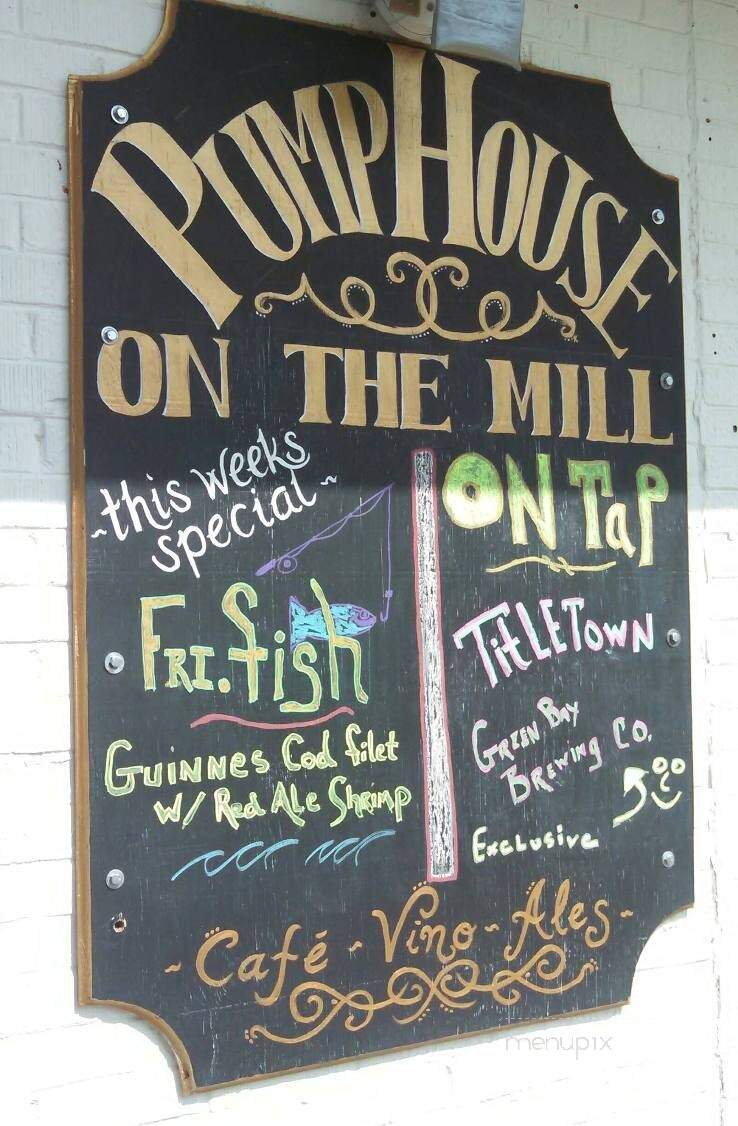 PUMPHOUSE
ON THE MILL
~this weeks
special~
FRI. fish
GUINNES Cod filet
W/ Red Ale Shrimp
ON TaP
TitLETOWN
GREEN BAY
BREWING CO.
Exclusive
~Café~Vino~Ales~
menupix